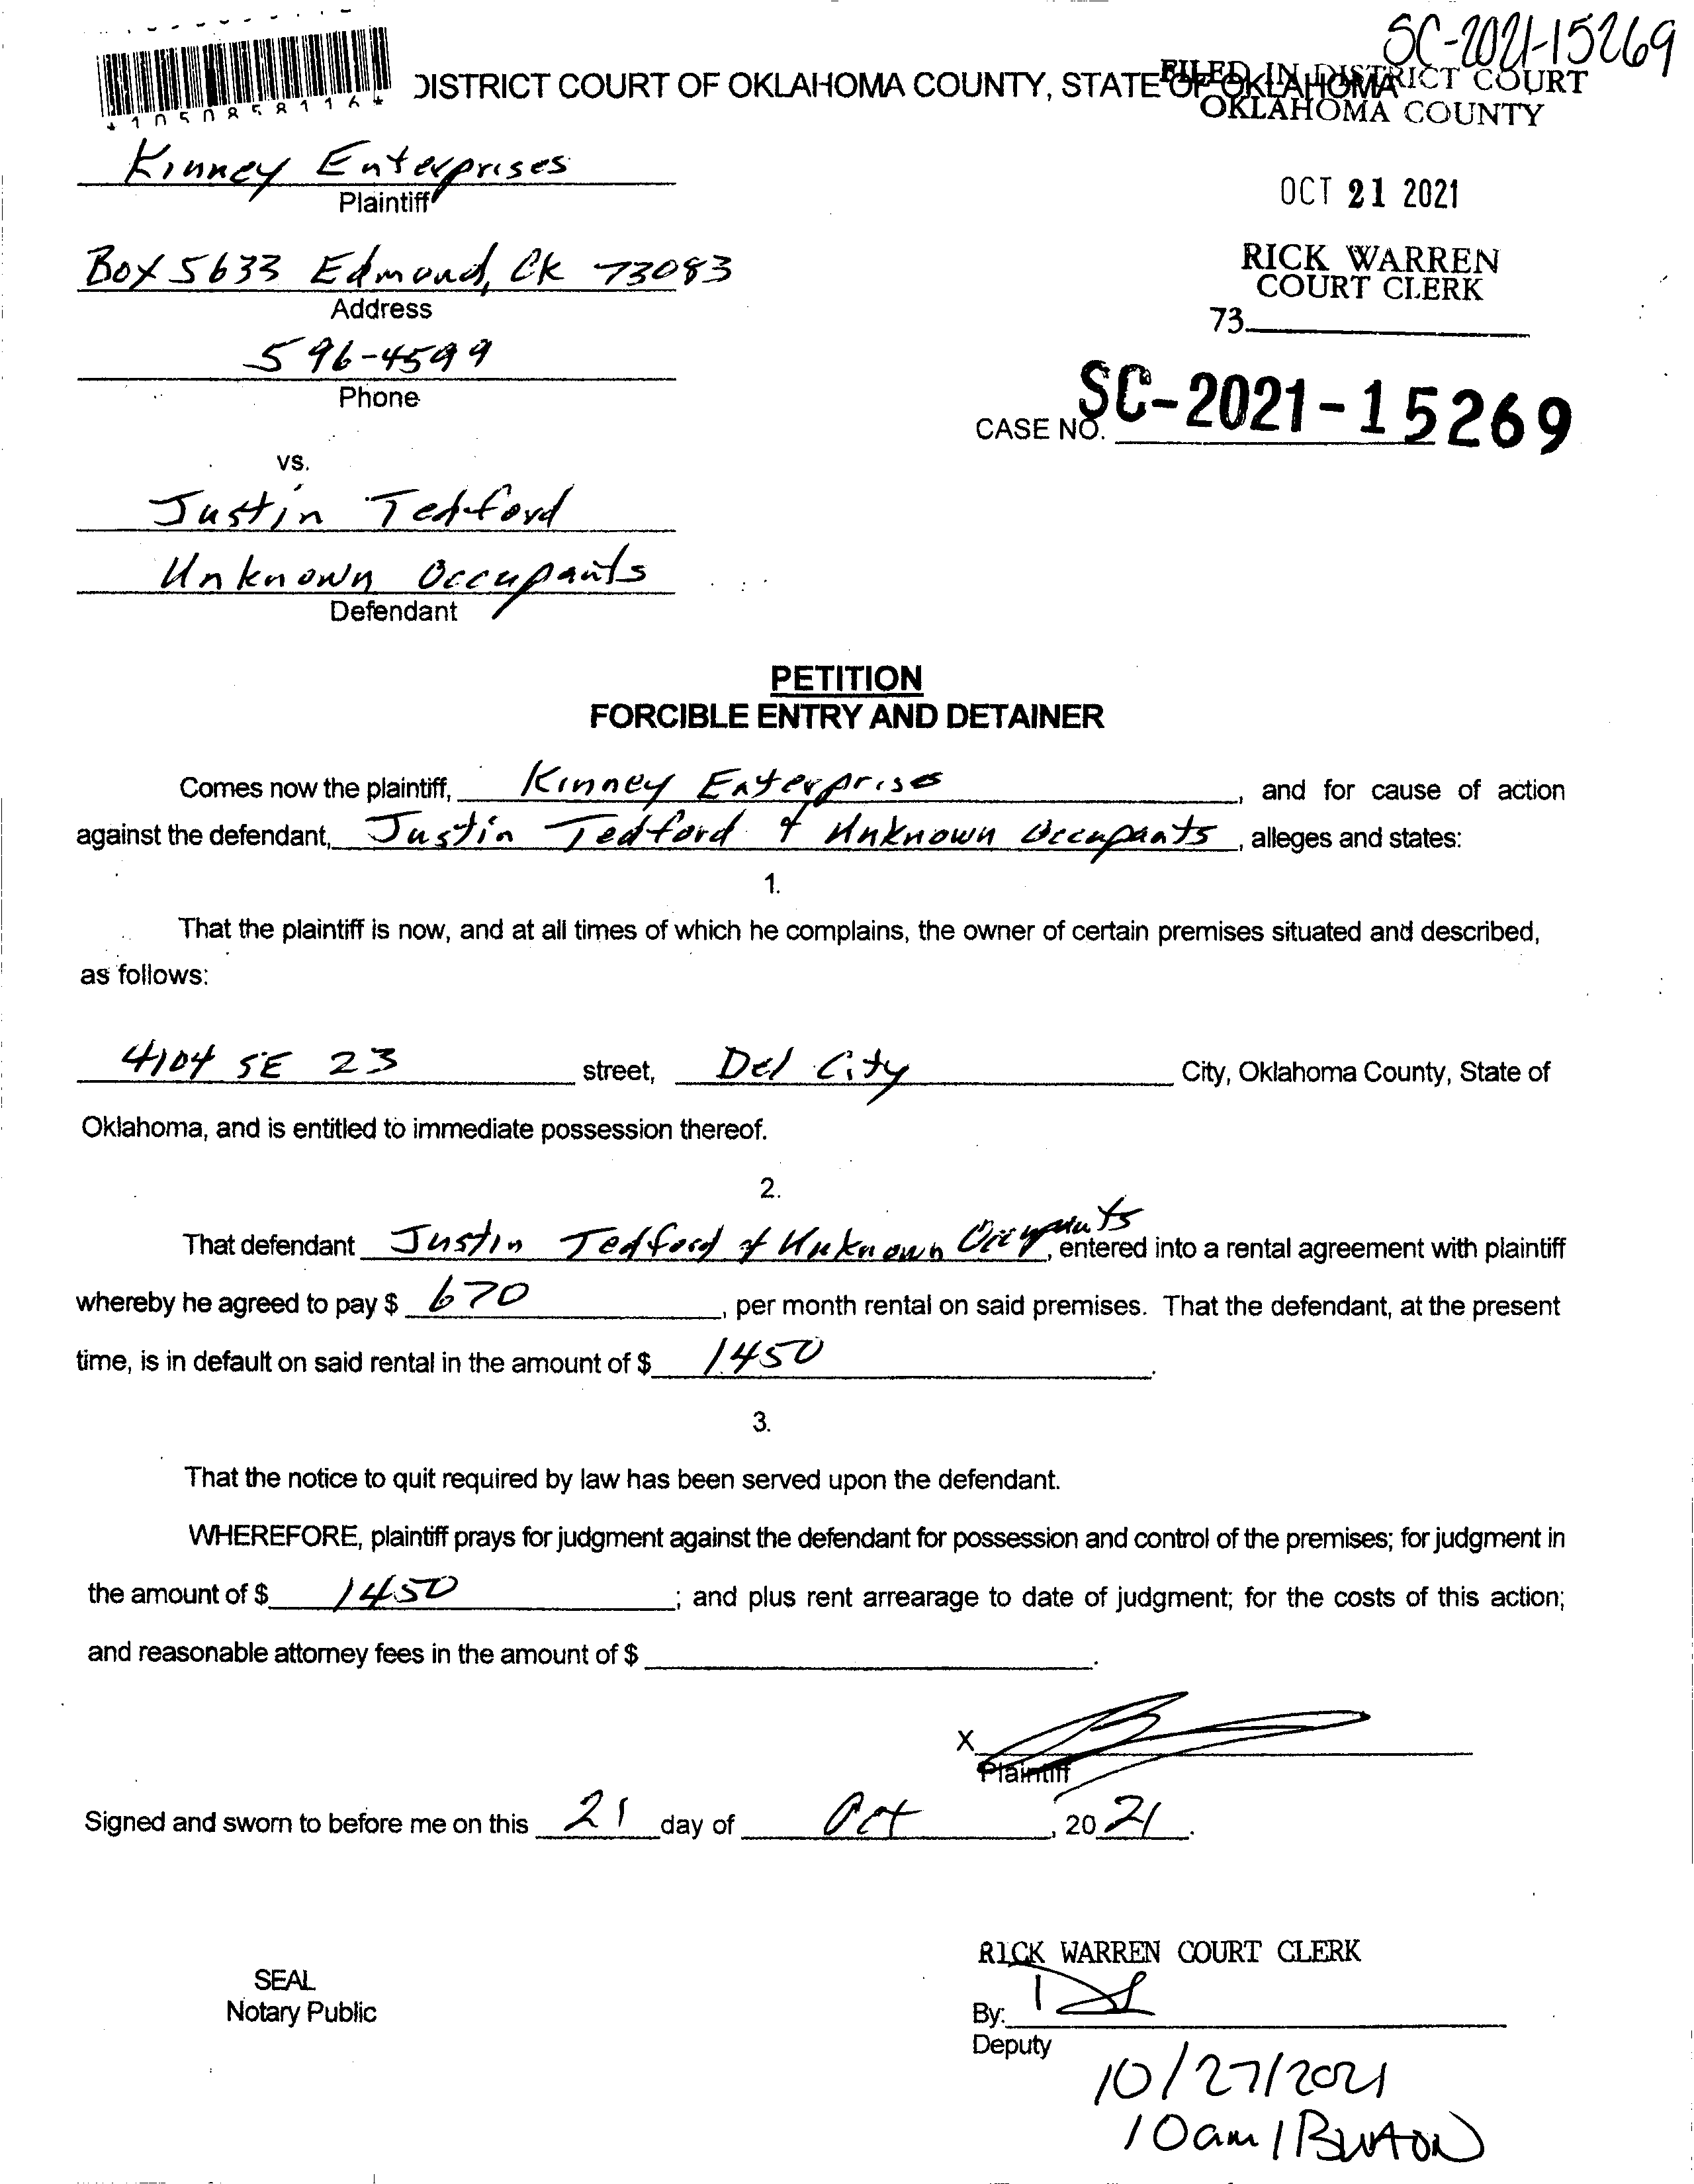 SC-2021-15269
DISTRICT COURT OF OKLAHOMA COUNTY, STATE OF OKLAHOMA
FILED IN DISTRICT COURT
OKLAHOMA COUNTY
*1050858116*
Kinney Enterprises
Plaintiff
OCT 21 2021
Box 5633 Edmond, OK 73083
Address
RICK WARREN
COURT CLERK
73
596-4599
Phone
CASE NO. SC-2021-15269
vs.
Justin Tedford
Unknown Occupants
Defendant
PETITION
FORCIBLE ENTRY AND DETAINER
Comes now the plaintiff, Kinney Enterprises, and for cause of action
against the defendant, Justin Tedford & Unknown Occupants, alleges and states:
1.
That the plaintiff is now, and at all times of which he complains, the owner of certain premises situated and described,
as follows:
4104 SE 23 street, Del City City, Oklahoma County, State of
Oklahoma, and is entitled to immediate possession thereof.
2.
That defendant Justin Tedford & Unknown Occupants, entered into a rental agreement with plaintiff
whereby he agreed to pay $ 670, per month rental on said premises. That the defendant, at the present
time, is in default on said rental in the amount of $ 1450.
3.
That the notice to quit required by law has been served upon the defendant.
WHEREFORE, plaintiff prays for judgment against the defendant for possession and control of the premises; for judgment in
the amount of $ 1450; and plus rent arrearage to date of judgment; for the costs of this action;
and reasonable attorney fees in the amount of $ .
X
Plaintiff
Signed and sworn to before me on this 21 day of Oct, 2021.
RICK WARREN COURT CLERK
SEAL
Notary Public
By:
Deputy
10/27/2021
10am/